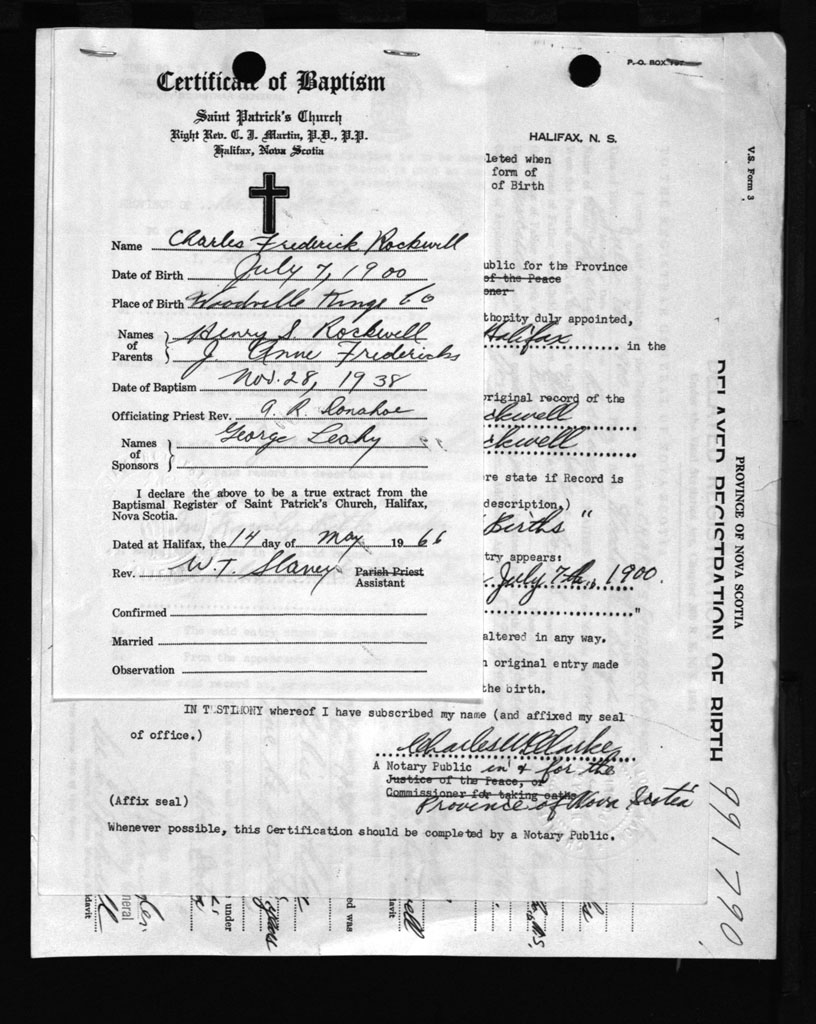 Certificate of Baptism
Saint Patrick's Church
Right Rev. C. J. Martin, P.D., P.P.
Halifax, Nova Scotia
Name Charles Frederick Rockwell
Date of Birth July 7, 1900
Place of Birth Woodville Kings Co
Names of Parents Henry S. Rockwell
J. Anne Fredericks
Date of Baptism Nov. 28, 1938
Officiating Priest Rev. G. R. Donahoe
Names of Sponsors George Leahy
I declare the above to be a true extract from the
Baptismal Register of Saint Patrick's Church, Halifax,
Nova Scotia.
Dated at Halifax, the 14 day of May 1966
Rev. W. T. Slaney Parish Priest
Assistant
Confirmed
Married
Observation
P. O. BOX
HALIFAX, N. S.
leted when
form of
of Birth
ublic for the Province
of the Peace
oner
thority duly appointed,
Halifax in the
original record of the
ckwell
ckwell
re state if Record is
description.)
Births "
try appears:
July 7th, 1900.
"
altered in any way.
n original entry made
the birth.
IN TESTIMONY whereof I have subscribed my name (and affixed my seal
of office.)
Charles W. Clarke
A Notary Public in & for the
Justice of the Peace, or
Commissioner for taking oaths
Province of Nova Scotia
(Affix seal)
Whenever possible, this Certification should be completed by a Notary Public.
V.S. Form 3
PROVINCE OF NOVA SCOTIA
DELAYED REGISTRATION OF BIRTH
991790
davit
neral
under
ed was
N.S.